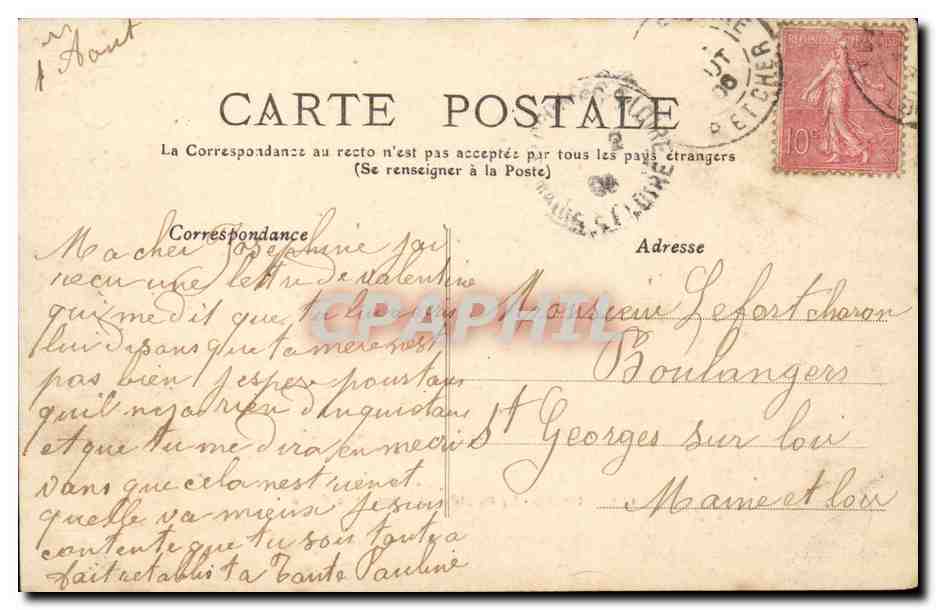 1er Aout
CARTE POSTALE
La Correspondance au recto n'est pas acceptée par tous les pays étrangers
(Se renseigner à la Poste)
REPUBLIQUE FRANÇAISE
10c
ET CHER
Correspondance
Ma cher Josephine jai
recu une lettre de valentine
qui me dit que tu lui a
lui disans que ta mere nest
pas bien jesper pourtans
quil nya rien dinquietans
et que tu me dira en mecri
vans que cela nest rien et
quelle va mieux je suis
contente que tu sois toute a
fait retablis ta Tante Pauline
Adresse
Monsieur Lefort charon
Boulangers
St Georges sur loir
Maine et loir
CPAPHIL